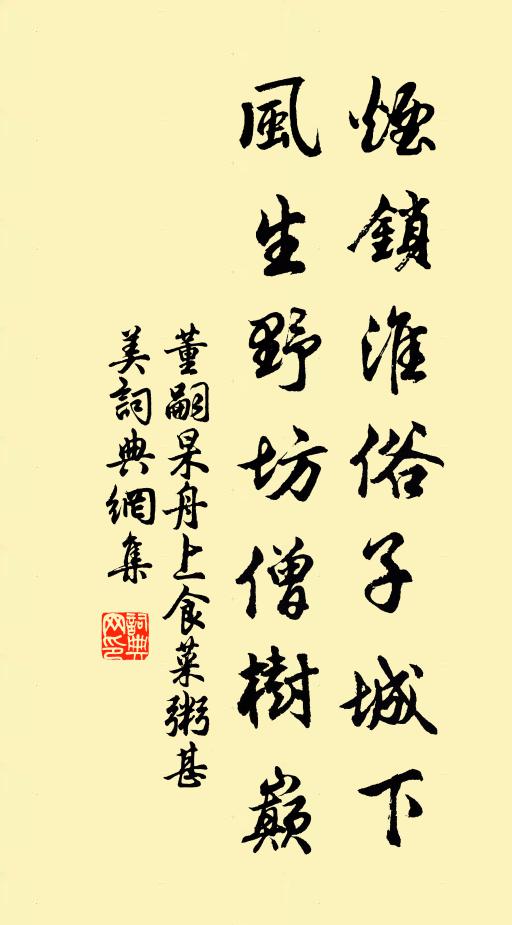 煙鎖淮俗子城下
風生野坊僧樹巔
董嗣杲舟上食菜粥甚
美詞典網集
詞典
网印